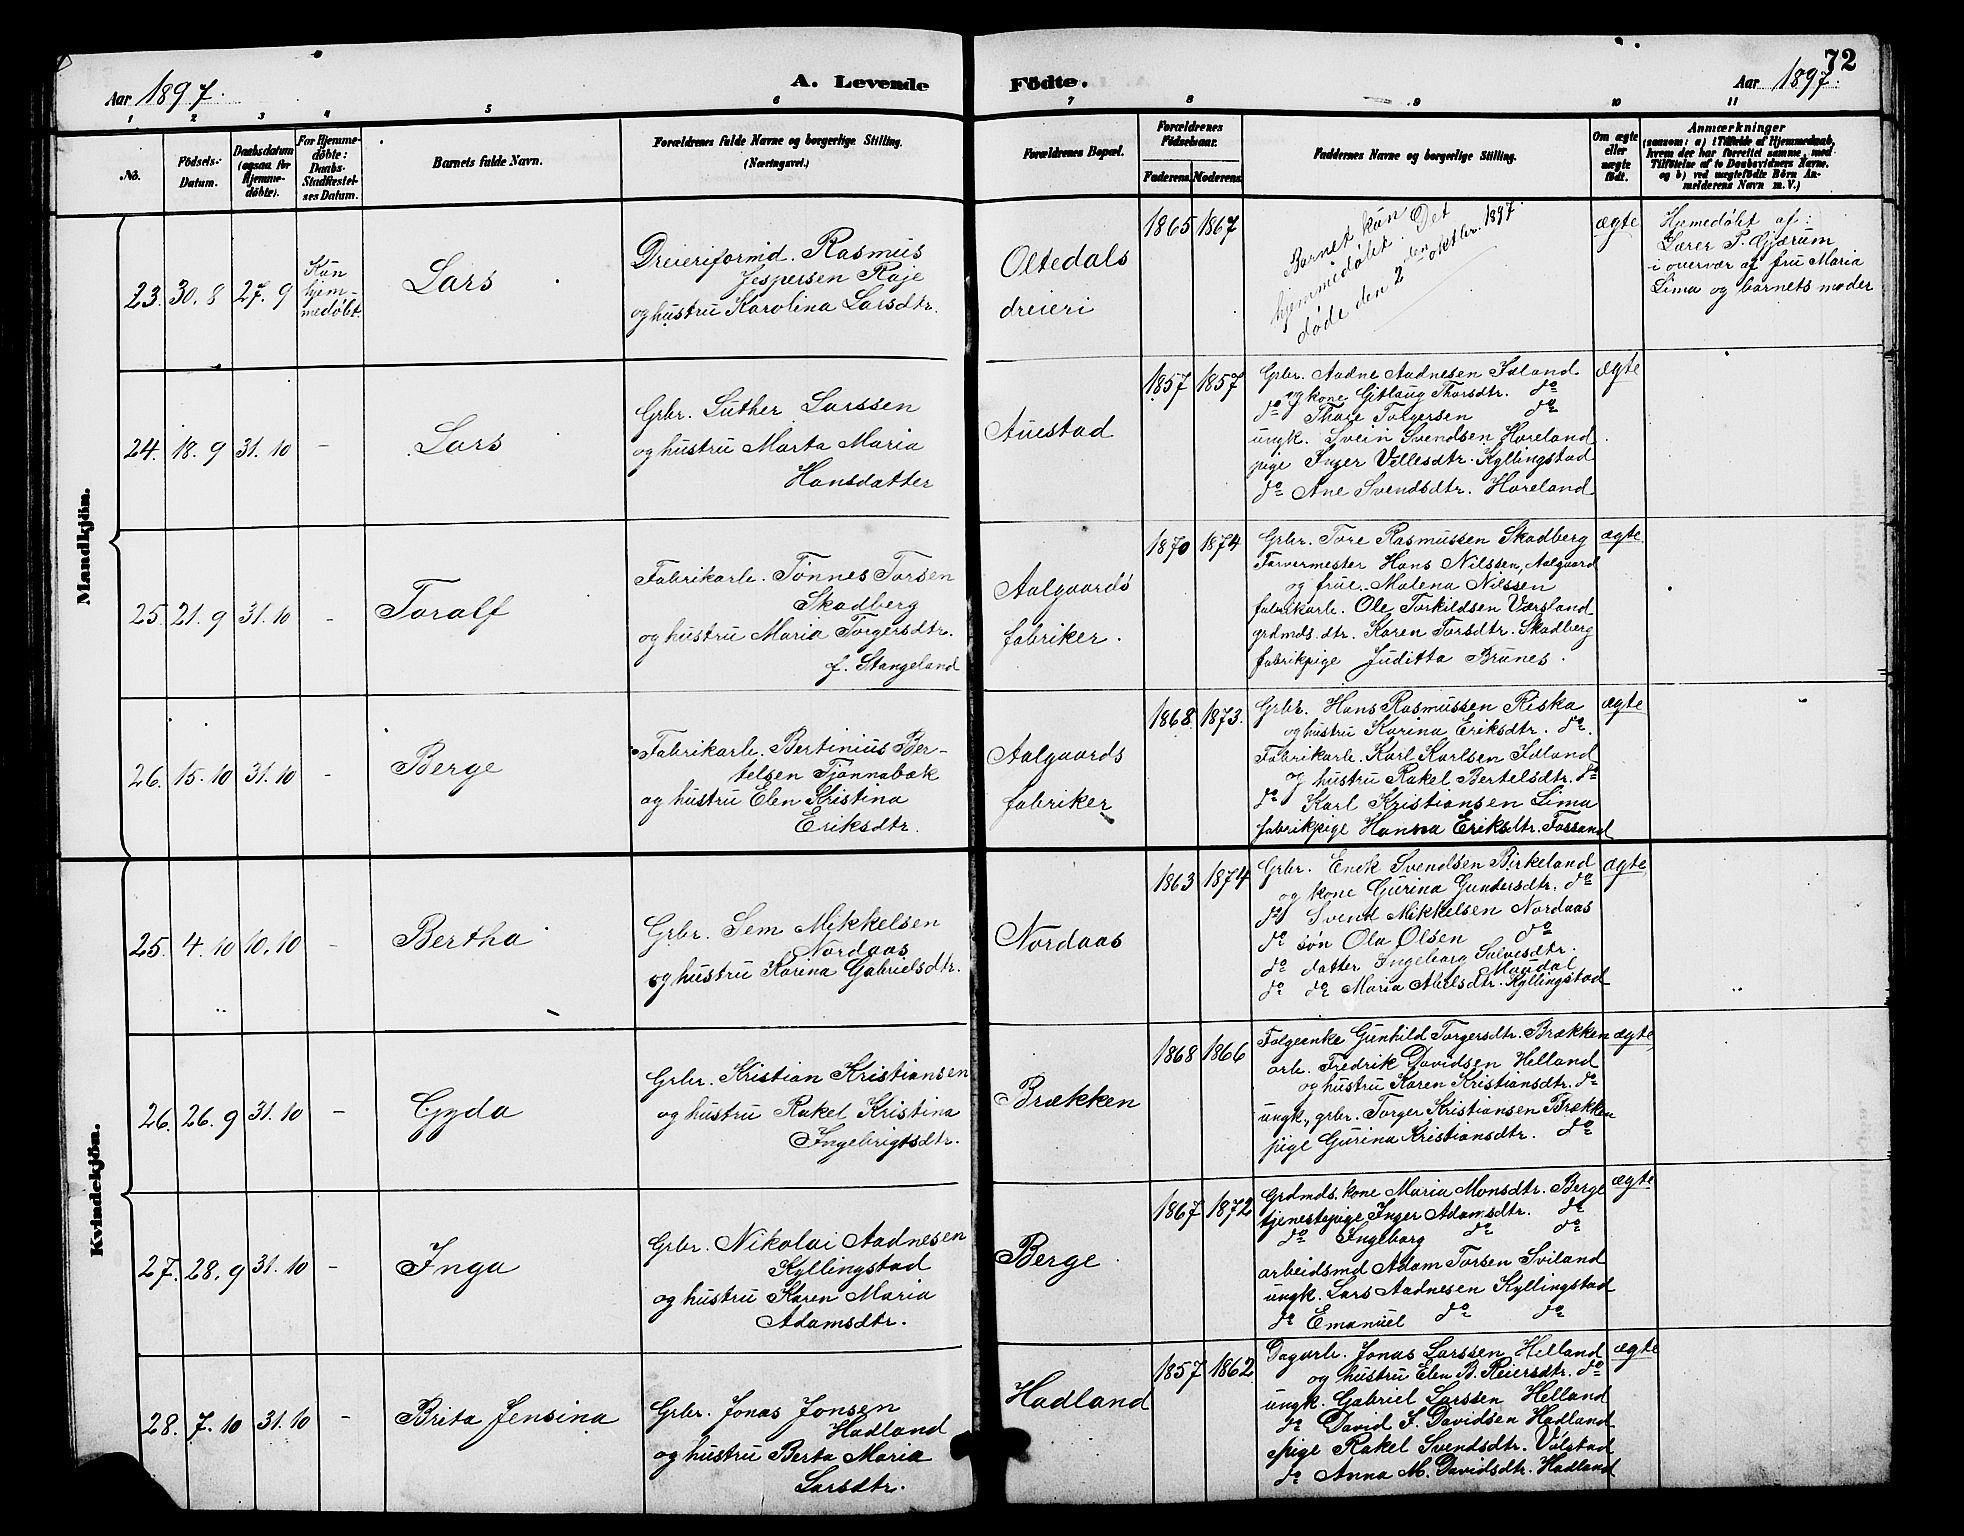 72
Aar 1897.
A. Levende Födte.
Aar 1897.
1 2 3 4 5 6 7 8 9 10 11
No.
Födsels-
Datum.
Daabsdatum
(ogsaa for
Hjemme-
döbte).
For Hjemme-
döbte:
Daabs-
Stadfæstel-
ses Datum.
Barnets fulde Navn.
Forældrenes fulde Navne og borgerlige Stilling.
(Næringsvei.)
Forældrenes Bopæl.
Forældrenes
Födselsaar.
Faderens. Moderens.
Faddernes Navne og borgerlige Stilling.
Om ægte
eller
uægte
födt.
Anmærkninger
(saasom: a) i Tilfælde af Hjemmedaab,
hvem der har forrettet samme, med
Tilföielse af to Daabsvidners Navne,
og b) ved uægtefödte Börn An-
melderens Navn m. V.)
Mandkjön.
23. 30. 8 27. 9
Kun
hjem-
medøbt.
Lars
Dreieriformd. Rasmus
Jespersen Raje
og hustru Karolina Larsdtr.
Oltedals
dreieri
1865 1867
Barnet kun
hjemmedøbt. Det
døde den 2den oktbr. 1897.
ægte
Hjemedøbt af:
Lærer P. Gjærum
i overvær af fru Maria
Lima og barnets moder
24. 18. 9 31. 10 -
Lars
Grbr. Luther Larssen
og hustru Marta Maria
Hansdatter
Auestad
1857 1857
Grbr. Aadne Aadnesen Idland
og kone Gitlaug Thorsdtr. do
do Thore Tolgersen do
ungk. Svein Svendsen Hareland
pige Inger Vellesdtr. Kyllingstad
do Ane Svendsdtr. Hareland
ægte
25. 21. 9 31. 10 -
Toralf
Fabrikarb. Tønnes Torsen
Skadberg
og hustru Maria Torgersdtr.
f. Stangeland
Aalgaards
fabriker.
1870 1874
Grbr. Tore Rasmussen Skadberg
Farvermester Hans Nilssen, Aalgaard
og frue Malena Nilssen
fabrikarb. Ole Torkildsen Værsland
grdmds. dtr. Karen Torsdtr. Skadberg
fabrikpige Juditta Brunes.
ægte.
26. 15. 10 31. 10 -
Berge
Fabrikarb. Bertinius Ber-
telsen Tjønnabæk
og hustru Elen Kristina
Eriksdtr.
Aalgaards
fabriker
1868 1873.
Grbr. Hans Rasmussen Riska
og hustru Karina Eriksdtr. do.
Fabrikarb. Karl Karlsen Idland
og hustru Rakel Bertelsdtr. do
do Karl Kristiansen Lima
fabrikpige Hanna Eriksdtr. Fossand
ægte
Kvindekjön.
25. 4. 10 10. 10 -
Bertha
Grbr. Sem Mikkelsen
Nordaas
og hustru Karina Gabrielsdtr.
Nordaas
1863 1874
Grbr. Enek Svendsen Birkeland
og kone Gurina Gundersdtr. do
do Svend Mikkelsen Nordaas
do søn Ola Olsen do
do datter Ingeborg Salvesdtr.
Maudal
do do Maria Abelsdtr. Kyllingstad
ægte
26. 26. 9 31. 10 -
Gyda
Grbr. Kristian Kristiansen
og hustru Rakel Kristina
Ingebrigtsdtr.
Brækken
1868 1866
Folgeenke Gunhild Torgersdtr. Brækken
arb. Fredrik Davidsen Helland
og hustru Karen Kristiansdtr. do
ungk., grbr. Torger Kristiansen Brækken
pige Gurina Kristiansdtr. do
ægte
27. 28. 9 31. 10 -
Inga
Grbr. Nikolai Aadnesen
Kyllingstad
og hustru Karen Maria
Adamsdtr.
Berge
1867 1872
Grdmds. kone Maria Monsdtr. Berge
tjenestepige Inger Adamsdtr. do
do Ingeborg do do
arbeidsmd Adam Torsen Sviland
ungk. Lars Aadnesen Kyllingstad
do Emanuel do do
ægte
28. 7. 10 31. 10 -
Brita Jensina
Grbr. Jonas Jonsen
Hadland
og hustru Berta Maria
Larsdtr.
Hadland
1857 1862
Dagarb. Jonas Larssen Helland
og hustru Elen B. Reiersdtr. do
ungk. Gabriel Larssen Helland
do David S. Davidsen Hadland
pige Rakel Svendsdtr. Válstad
do Anna M. Davidsdtr. Hadland
ægte